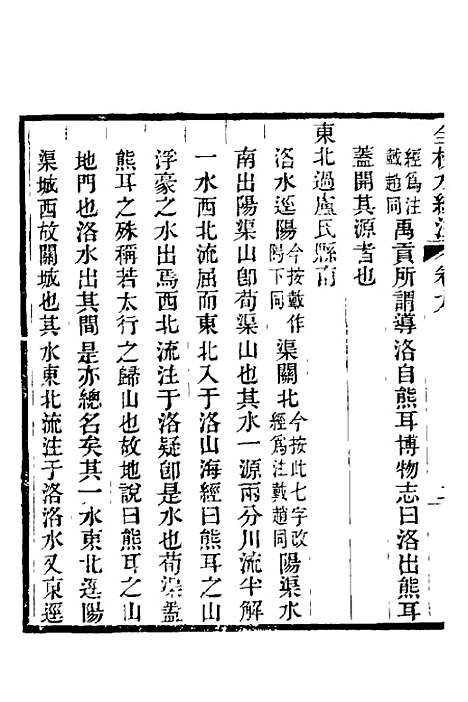 全校水經注 卷九
經爲注戴趙同禹貢所謂導洛自熊耳博物志曰洛出熊耳
蓋開其源者也
東北過盧民縣南
洛水逕陽今按戴作隝下同渠關北今按此七字改經爲注戴趙同陽渠水
南出陽渠山卽荀渠山也其水一源兩分川流半解
一水西北流屈而東北入于洛山海經曰熊耳之山
浮豪之水出焉西北流注于洛疑卽是水也荀渠蓋
熊耳之殊稱若太行之歸山也故地說曰熊耳之山
地門也洛水出其間是亦總名矣其一水東北逕陽
渠城西故關城也其水東北流注于洛洛水又東逕